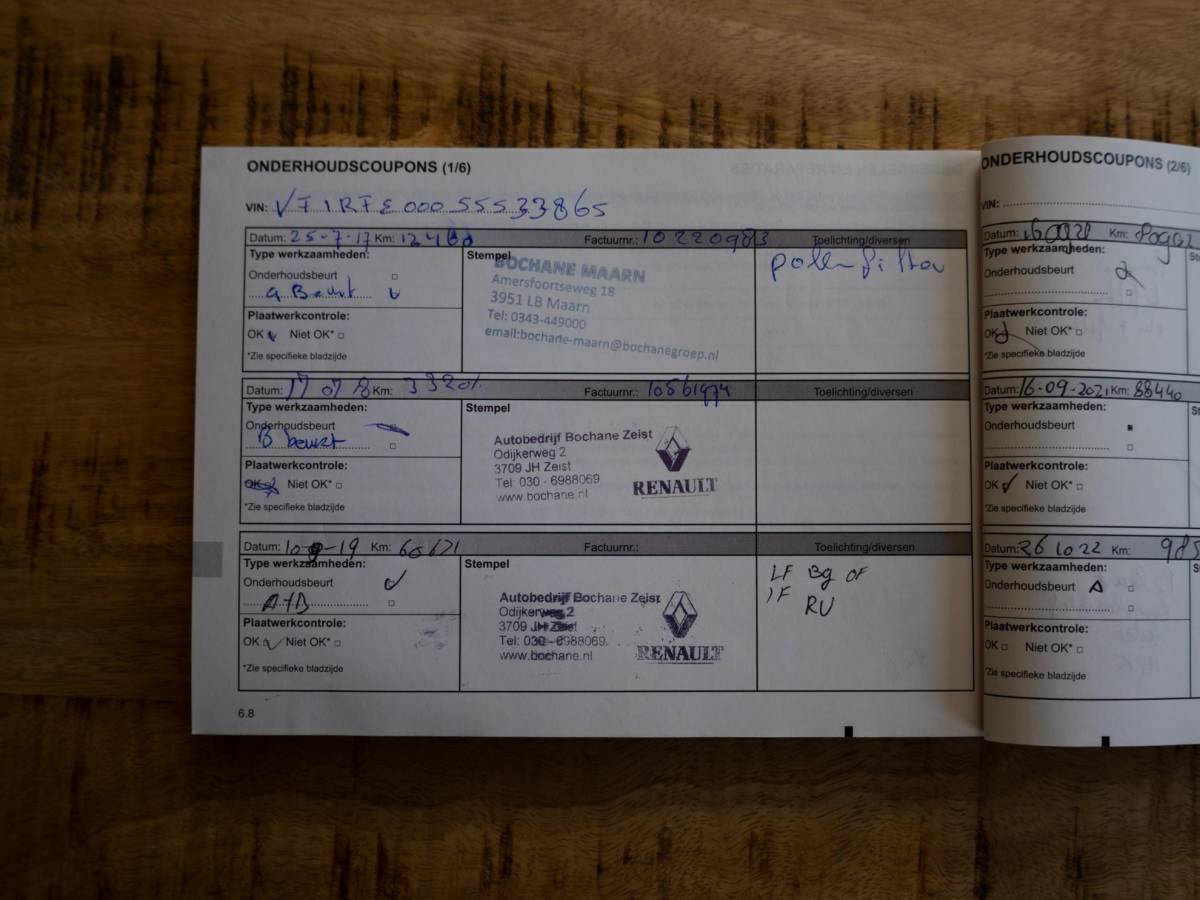 ONDERHOUDSCOUPONS (1/6)
VIN: VF1RFE00055533865
Datum: 25-7-17 Km: Factuurnr.: 10220983 Toelichting/diversen
Type werkzaamheden:
Onderhoudsbeurt
a Beurt
Plaatwerkcontrole:
OK Niet OK*
*Zie specifieke bladzijde
Stempel
BOCHANE MAARN
Amersfoortseweg 18
3951 LB Maarn
Tel: 0343-449000
email:bochane-maarn@bochanegroep.nl
pollenfilter
Datum: 17 07 18 Km: 33201 Factuurnr.: 10561974 Toelichting/diversen
Type werkzaamheden:
Onderhoudsbeurt
B beurt
Plaatwerkcontrole:
OK Niet OK*
*Zie specifieke bladzijde
Stempel
Autobedrijf Bochane Zeist
Odijkerweg 2
3709 JH Zeist
Tel: 030 - 6988069
www.bochane.nl
RENAULT
Datum: 10-9-19 Km: 60671 Factuurnr.: Toelichting/diversen
Type werkzaamheden:
Onderhoudsbeurt
A+B
Plaatwerkcontrole:
OK Niet OK*
*Zie specifieke bladzijde
Stempel
Autobedrijf Bochane Zeist
Odijkerweg 2
3709 JH Zeist
Tel: 030 - 6988069
www.bochane.nl
RENAULT
LF Bg OF
IF RU
6.8
ONDERHOUDSCOUPONS (2/6)
VIN:
Datum: Km:
Type werkzaamheden:
Onderhoudsbeurt
Plaatwerkcontrole:
OK Niet OK*
*Zie specifieke bladzijde
Datum: 16-09-2021 Km: 88440
Type werkzaamheden:
Onderhoudsbeurt
Plaatwerkcontrole:
OK Niet OK*
*Zie specifieke bladzijde
Datum: 261022 Km: 985
Type werkzaamheden:
Onderhoudsbeurt A
Plaatwerkcontrole:
OK Niet OK*
*Zie specifieke bladzijde